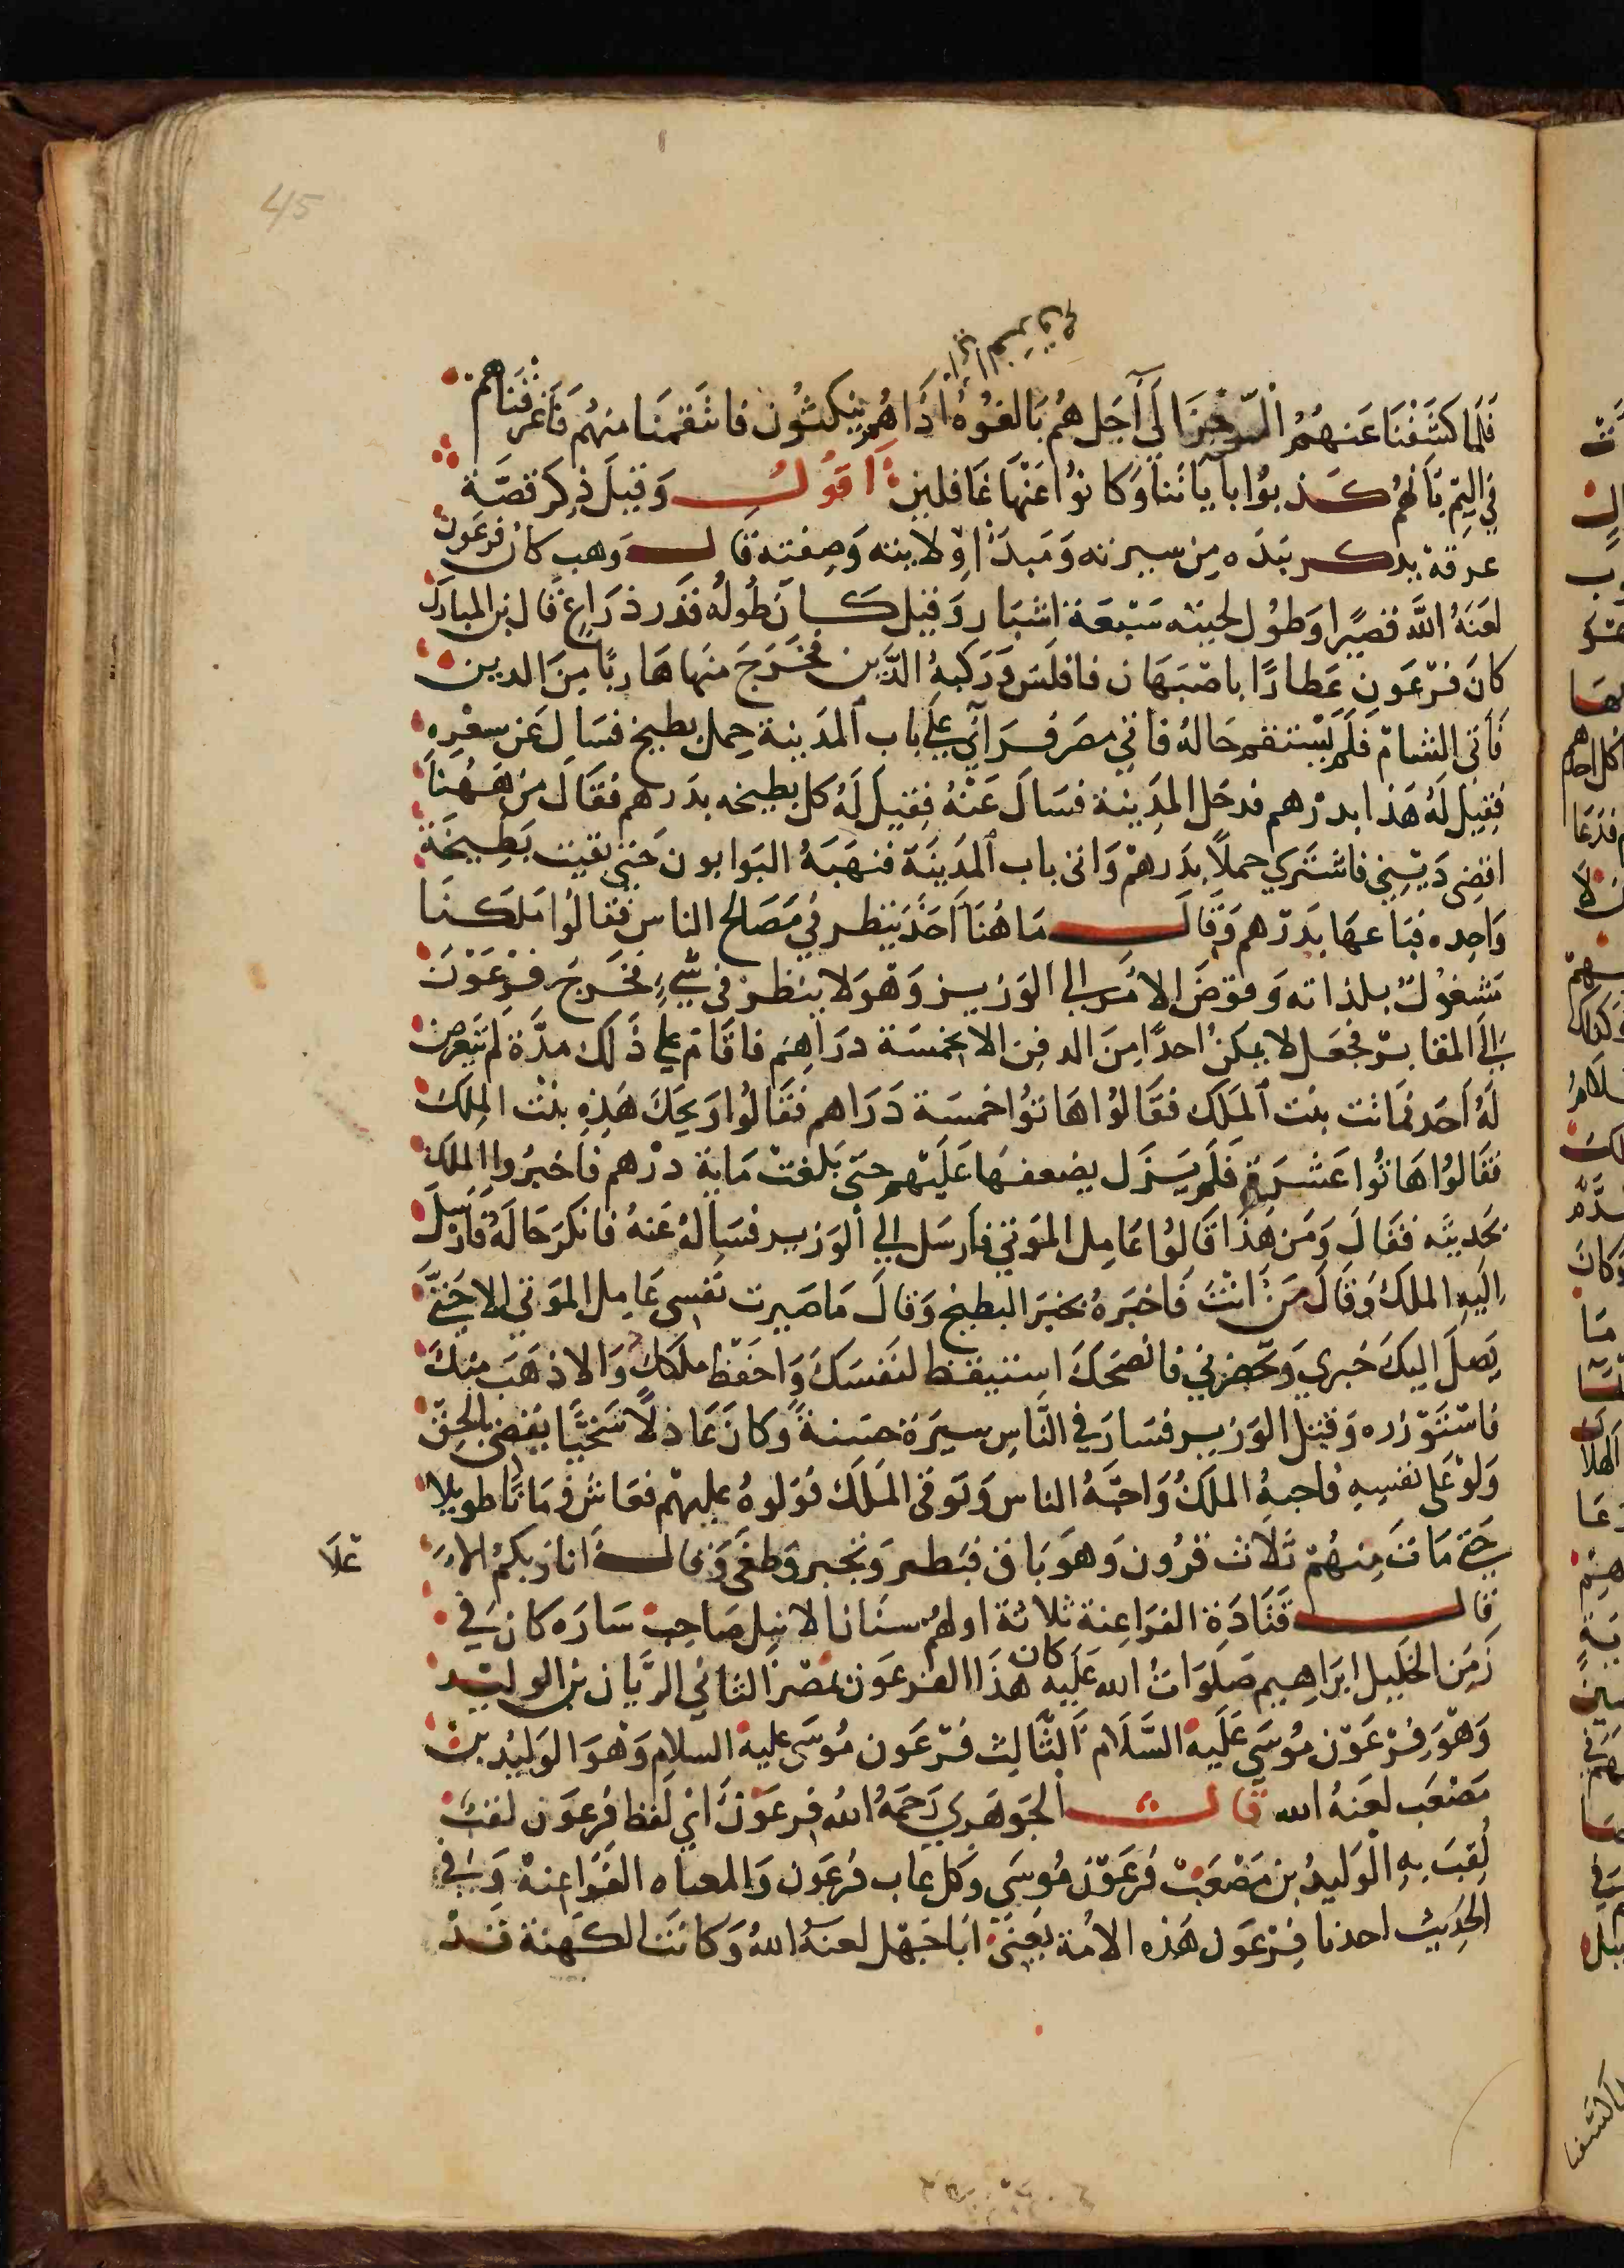 45
فَلَمَا كشَفْنَا عَنهُمُ الرّجزَ الَي آجَل هُم بَالغُوهُ اذَا هُم ينكثُون فانتَقمنَا منهُم فَاغرَقنَاهم
في اليَمّ بَانَّهُم كَذبوُا باَياتنا وَكانوُا عَنْهَا غَافلين اَقوُلُ وَقبلَ ذِكر قصّة
غرقهْ نذكر نبذَه مِن سيرته وَمَبدَا ولايته وَصِفته قال وَهب كان فرعَون
لعَنَهُ اللَّه قصيًرا وَطوُل لحيته سَبْعَة اشبَار وَقيل كَانَ طُولهُ قدَر ذرَاع قال بن المبارَك
كانَ فرْعَون عَطارًا باصْبَهَان فافلَسَ وَرَكبهُ الدَّين فخَرَجَ منَها هَاربًا مِنَ الدين
فَاتى الشامْ فلَم يَسْتقم حَالهُ فاتي مصرَ فرَاي عَلَي باب المدَينة حِمل بطيخ فسَال عَن سعْرِه
فقيل لهُ هَذا بدرْهم فدخَل المدِينة فسَالَ عَنْهُ فقيل لَهُ كل بطيخه بدَرهم فقَالَ مِن هَهُنَا
اقضِى دَيْنِي فاشترَي حملًا بدَرهمْ وَاتى باب المدَينَة فنهَبَهُ البَوابون حَتي بَقيت بَطِيخَة
وَاحِده فبَاعهَا بَدرْهم وَقَالَ مَا هُنَا اَحَدٌ يَنظر في مَصَالح الناس فقالوُا مَلَكنَا
مَشغوُلٌ بلذاته وَفوَّضَ الامَر الى الوَزير وَهوَ لا ينظرْ في شيٍ فخَرجَ فِرْعَوْنَ
الَى المقابرْ فجعَل لا يمكنُ احدًا مِنَ الدفن الا بخمسَة درَاهِم فاقَامَ علي ذَلكَ مدَّة لم يتَعرض
لهُ اَحَد فماتت بنت المَلَك فقَالوُا هَاتوُا خمسَة دَرَاهم فقَالوُا وَيحَك هَذِه بنْت المِلكُ
فقَالوُا هَاتُوا عَشرَة فلَم يَزل يضعفهَا عَليْهم حتىَ بَلغتْ مَاية درْهم فاَخبرُوا الملَك
بحَديثه فقَالَ وَمَن هذَا قالوُا عَامِل المَوتي فاَرسَل إلي الوَزير فسَالهُ عَنهُ فانكرَ حَالهُ فارْسَل
اِليَه الملكُ وَقَالَ مَنْ انتَ فَاخبَرهُ بخبَر البطيخ وَقالَ مَا صَيرت نفسِي عَامِل المَوتى الا حَتىَّ
يَصلَ اليكَ خبري وَتحضِرني فانصَحَكَ استيقظ لنَفسَكَ وَاحفَظ ملككَ وَالا ذهَبَ مِنكَ
فاسْتَوْزره وَقتل الوَزير فسَارَ في النَّاس سيرَة حسَنةً وَكانَ عَادلًا سَخيًّا يقضى بالحِقّ
وَلوْ عَلى نفسِه فاحبهُ الملكُ وَاحبَّهُ الناس وَتوَفى المَلَك فوَلوهُ عليهْم فعَاش زمَانًا طويلا
حَتىَ مَات مِنهُمْ ثلَاث قرُون وَهوَ بَاق فبَطر وَتجبر وَطغَى وَقال اَنا ربكمْ الا
علَا
قال قتَادَة الفرَاعنة ثلاثة اولهم سنَان الاشل صَاحِب سَارَه كان في
زَمَن الخَليل ابرَاهِيم صَلوَات الله عَليه كان هذَا الفرعَون بمصْرَ الثاني الرّيَان بن الوليد
وَهْوَ فرْعَوْن مُوسَي عَلَيه السَّلَام اَلثَّالِث فرْعَون مُوسَى عليه السلام وَهْوَ الوَليد بن
مَصْعَب لعَنهُ الله قال الجَوهَري رَحمَهُ الله فرعَوْنَ اي لَفظ فرعَون لقبٌ
لُقبَ بهِ الْوَليدُ بن مَصْعَبْ فرعَوْن مُوسَي وَكل عاب فرعَون وَالمعناه الفرَاعِنة وَفي
الحَديث احدنا فِرْعَون هَذه الامة يَعنَي اَبا جَهْل لعنهُ اللهُ وَكانَت الكَهنَة قدْ